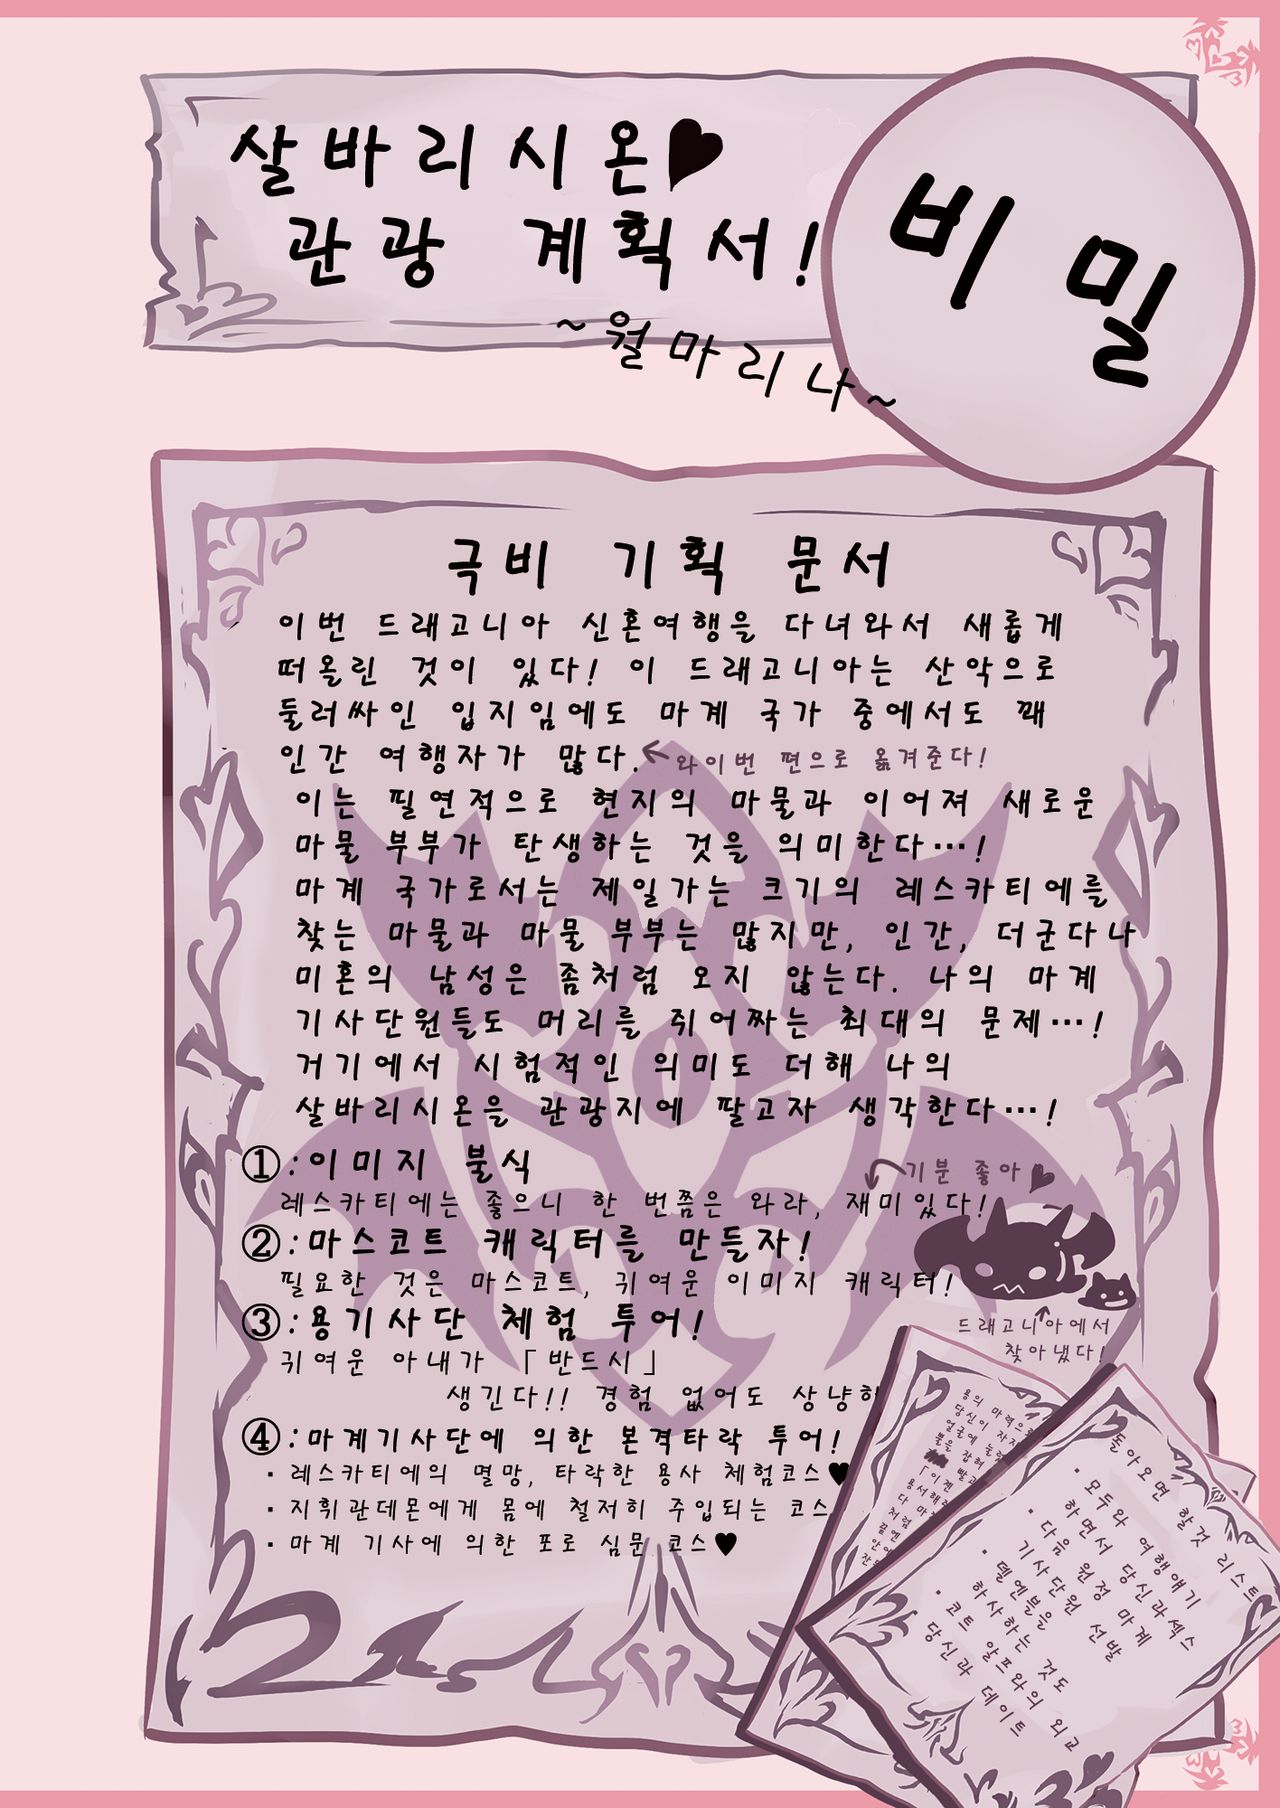 살바리시온♥
관광 계획서!
비밀
~윌마리나~
극비 기획 문서
이번 드래고니아 신혼여행을 다녀와서 새롭게
떠올린 것이 있다! 이 드래고니아는 산악으로
둘러싸인 입지임에도 마계 국가 중에서도 꽤
인간 여행자가 많다.
←와이번 편으로 옮겨준다!
이는 필연적으로 현지의 마물과 이어져 새로운
마물 부부가 탄생하는 것을 의미한다…!
마계 국가로서는 제일가는 크기의 레스카티에를
찾는 마물과 마물 부부는 많지만, 인간, 더군다나
미혼의 남성은 좀처럼 오지 않는다. 나의 마계
기사단원들도 머리를 쥐어짜는 최대의 문제…!
거기에서 시험적인 의미도 더해 나의
살바리시온을 관광지에 팔고자 생각한다…!
①:이미지 불식
기분 좋아♥
레스카티에는 좋으니 한 번쯤은 와라, 재미있다!
②:마스코트 캐릭터를 만들자!
필요한 것은 마스코트, 귀여운 이미지 캐릭터!
③:용기사단 체험 투어!
드래고니아에서
찾아냈다!
귀여운 아내가 「반드시」
생긴다!! 경험 없어도 상냥히
④:마계기사단에 의한 본격타락 투어!
·레스카티에의 멸망, 타락한 용사 체험코스♥
·지휘관데몬에게 몸에 철저히 주입되는 코스
·마계 기사에 의한 포로 심문 코스♥
용의 마력으로
당신이 자지
얼굴에 눌
뿔을 잡혀
「이젠 발
용서해
돌아오면 할것 리스트
·모두와 여행얘기
하면서 당신과섹스
·다음 원정 마계
기사단원 선발
·델엔블을
하사하는 것도
·코트 알프와의 외교
당신과 데이트